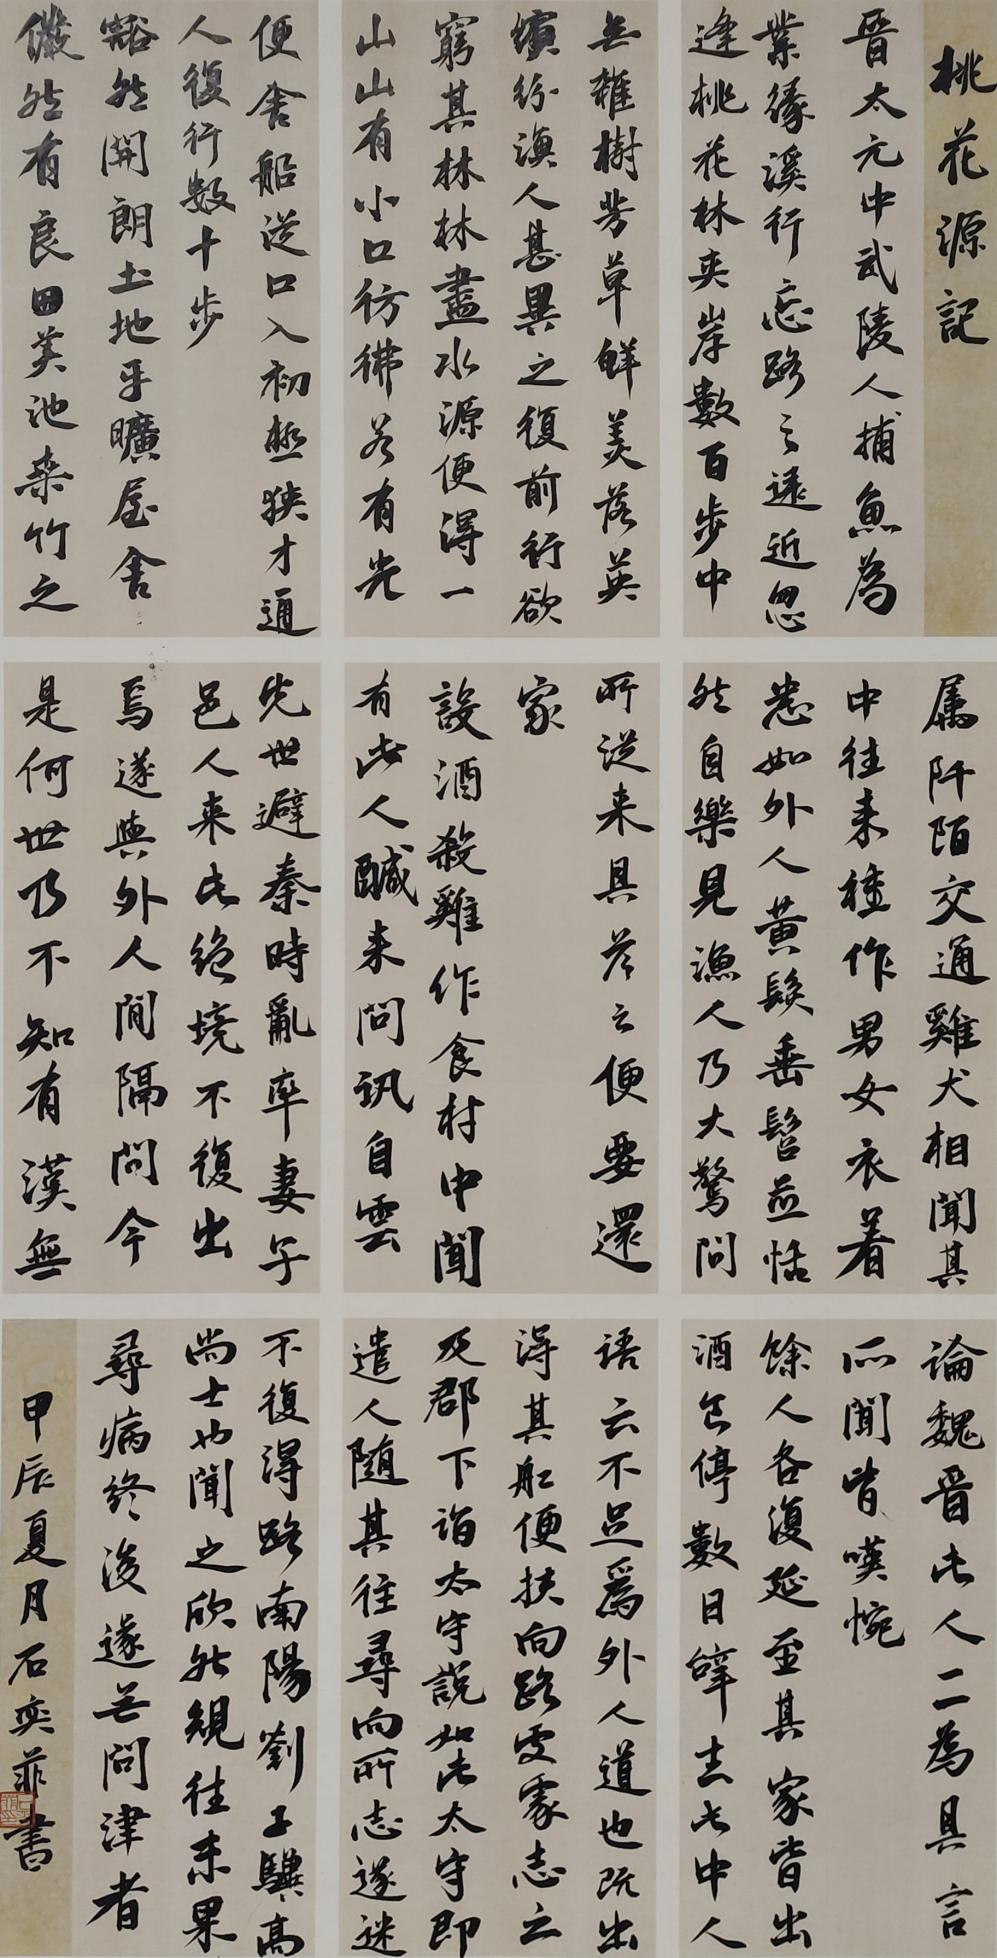 桃花源記
晉太元中武陵人捕魚為
業緣溪行忘路之遠近忽
逢桃花林夾岸數百步中
無雜樹芳草鮮美落英
繽紛漁人甚異之復前行欲
窮其林林盡水源便得一
山山有小口彷彿若有光
便舍船從口入初極狹才通
人復行數十步
豁然開朗土地平曠屋舍
儼然有良田美池桑竹之
屬阡陌交通雞犬相聞其
中往來種作男女衣着
悉如外人黃髮垂髫並怡
然自樂見漁人乃大驚問
所從来具答之便要還
家
設酒殺雞作食村中聞
有此人咸来問訊自雲
先世避秦時亂率妻子
邑人來此絕境不復出
焉遂與外人間隔問今
是何世乃不知有漢無
論魏晉此人一一為具言
所聞皆嘆惋
餘人各復延至其家皆出
酒食停數日辭去此中人
語云不足為外人道也既出
得其船便扶向路處處志之
及郡下詣太守說如此太守即
遣人随其往尋向所志遂迷
不復得路南陽劉子驥高
尚士也聞之欣然規往未果
尋病終後遂無問津者
甲辰夏月石奕菲書